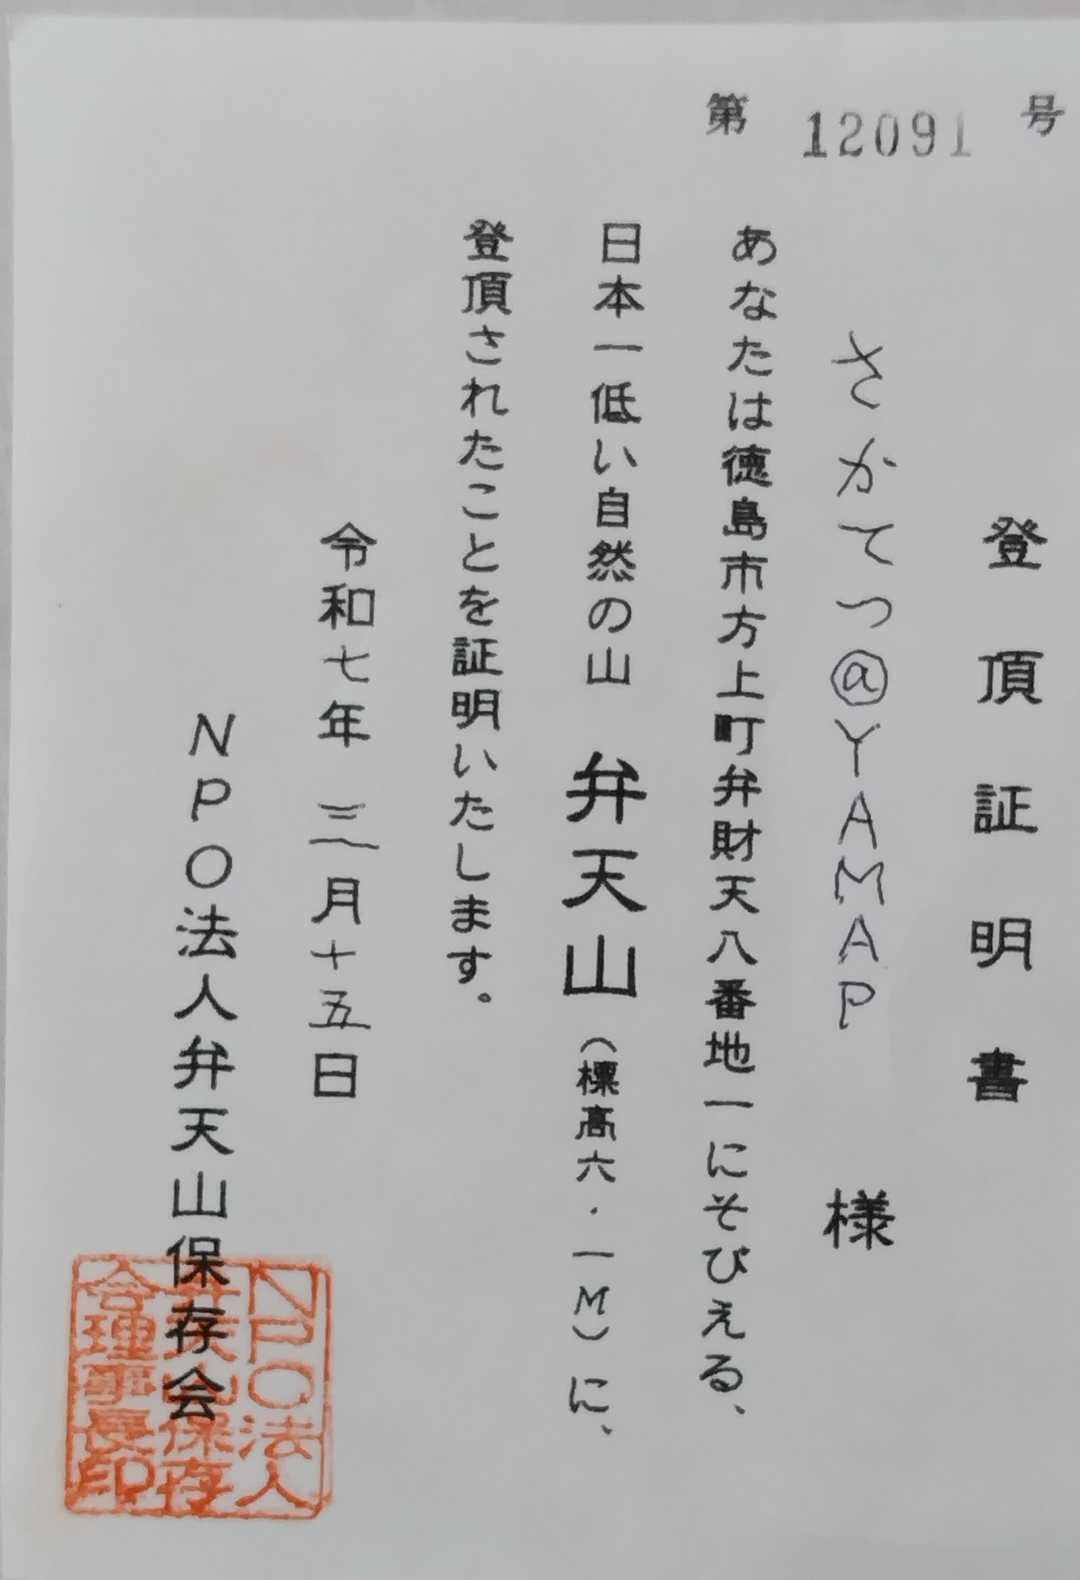 第 12091 号
登頂証明書
さかてつ@YAMAP 様
あなたは徳島市方上町弁財天八番地一にそびえる、
日本一低い自然の山 弁天山(標高六・一M)に、
登頂されたことを証明いたします。
令和七年 三月十五日
NPO法人弁天山保存会
NPO法人
弁天山保存
会理事長印